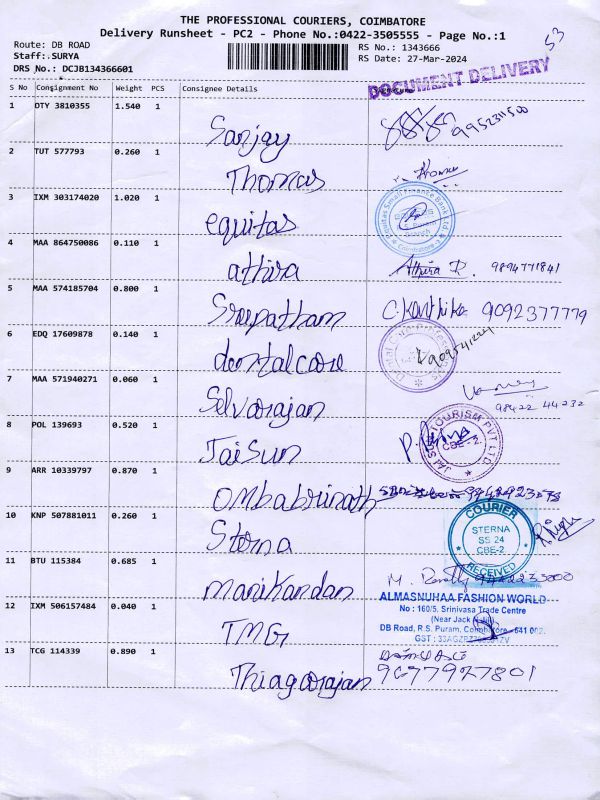 THE PROFESSIONAL COURIERS, COIMBATORE
Delivery Runsheet - PC2 - Phone No.:0422-3505555 - Page No.:1
53
Route: DB ROAD
RS No.: 1343666
Staff: SURYA
RS Date: 27-Mar-2024
DRS No.: DCJB134366601
DOCUMENT DELIVERY
S No Consignment No Weight PCS Consignee Details
1 DTY 3810355 1.540 1
Sanjay 9952311500
2 TUT 577793 0.260 1
Thomas
3 IXM 303174020 1.020 1
equitas
Equitas Small Finance Bank Ltd
Coimbatore
4 MAA 864750086 0.110 1
athira Athira R. 9894771841
5 MAA 574185704 0.800 1
Sreepatham C. Karthika 9092377779
6 EDQ 17609878 0.140 1
dentalcare
7 MAA 571940271 0.060 1
Selvarajan 98422 44232
8 POL 139693 0.520 1
Jaisun
TOURISM PVT LTD.
CBE-2
9 ARR 10339797 0.870 1
Ombabrinath
10 KNP 507881011 0.260 1
Sterna
COURIER
STERNA
SS 24
CBE-2
RECEIVED
11 BTU 115384 0.685 1
Manikandan M.
12 IXM 506157484 0.040 1
TMG
ALMASNUHAA FASHION WORLD
No : 160/5, Srinivasa Trade Centre
DB Road, R.S. Puram, Coimbatore - 641 002.
13 TCG 114339 0.890 1
Thiagarajan 9677927801